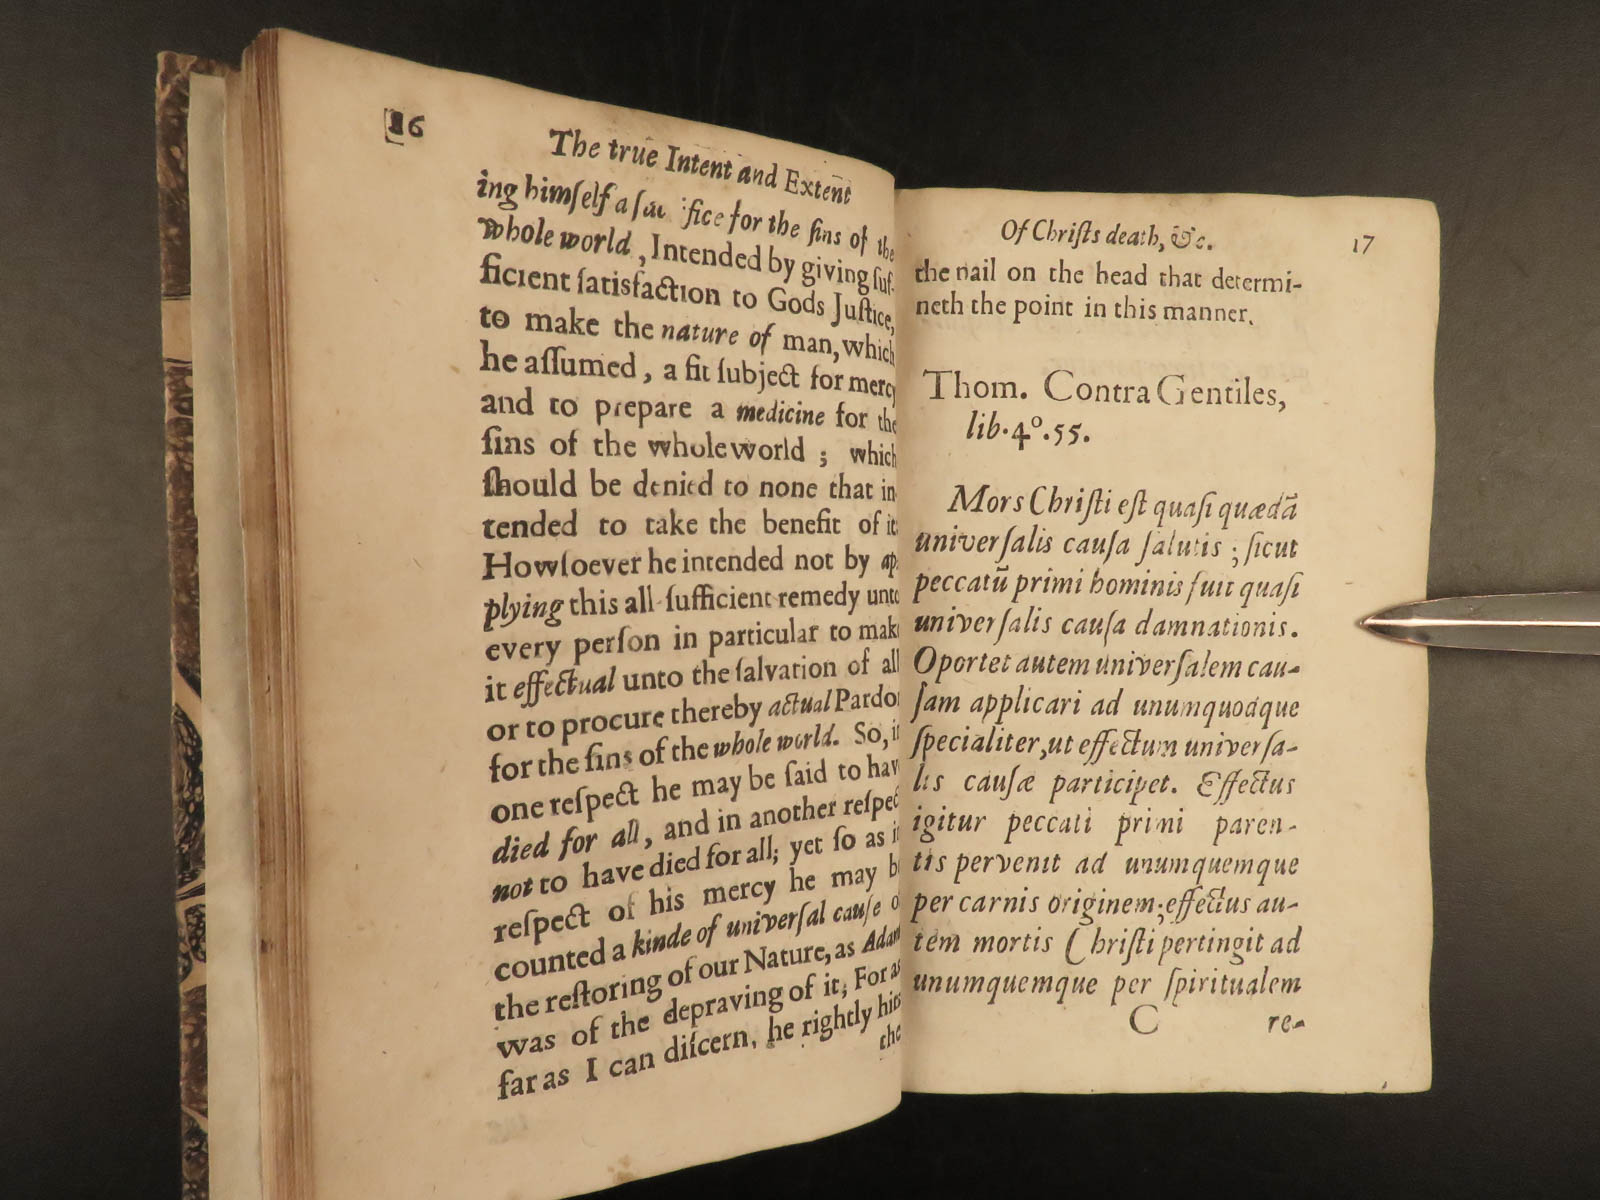 16
The true Intent and Extent
ing himſelf a ſac ifice for the ſins of the
whole world, Intended by giving ſuf-
ficient ſatisfaction to Gods Juſtice,
to make the nature of man, which
he aſſumed, a fit ſubject for mercy
and to prepare a medicine for the
ſins of the whole world; which
ſhould be denied to none that in
tended to take the benefit of it:
Howſoever he intended not by ap
plying this all-ſufficient remedy unto
every perſon in particular to make
it effectual unto the ſalvation of all
or to procure thereby actual Pardon
for the ſins of the whole world. So, in
one reſpect he may be ſaid to have
died for all, and in another reſpect
not to have died for all; yet ſo as in
reſpect of his mercy he may be
counted a kinde of univerſal cauſe of
the reſtoring of our Nature, as Adam
was of the depraving of it; For as
far as I can diſcern, he rightly hits
the
Of Chriſts death, &c.
17
the nail on the head that determi-
neth the point in this manner.
Thom. Contra Gentiles,
lib. 4º. 55.
Mors Chriſti eſt quaſi quædā
univerſalis cauſa ſalutis; ſicut
peccatū primi hominis fuit quaſi
univerſalis cauſa damnationis.
Oportet autem univerſalem cau-
ſam applicari ad unumquodque
ſpecialiter, ut effectum univerſa-
lis cauſæ participet. Effectus
igitur peccati primi paren-
tis pervenit ad unumquemque
per carnis originem; effectus au-
tem mortis Chriſti pertingit ad
unumquemque per ſpiritualem
C
re-